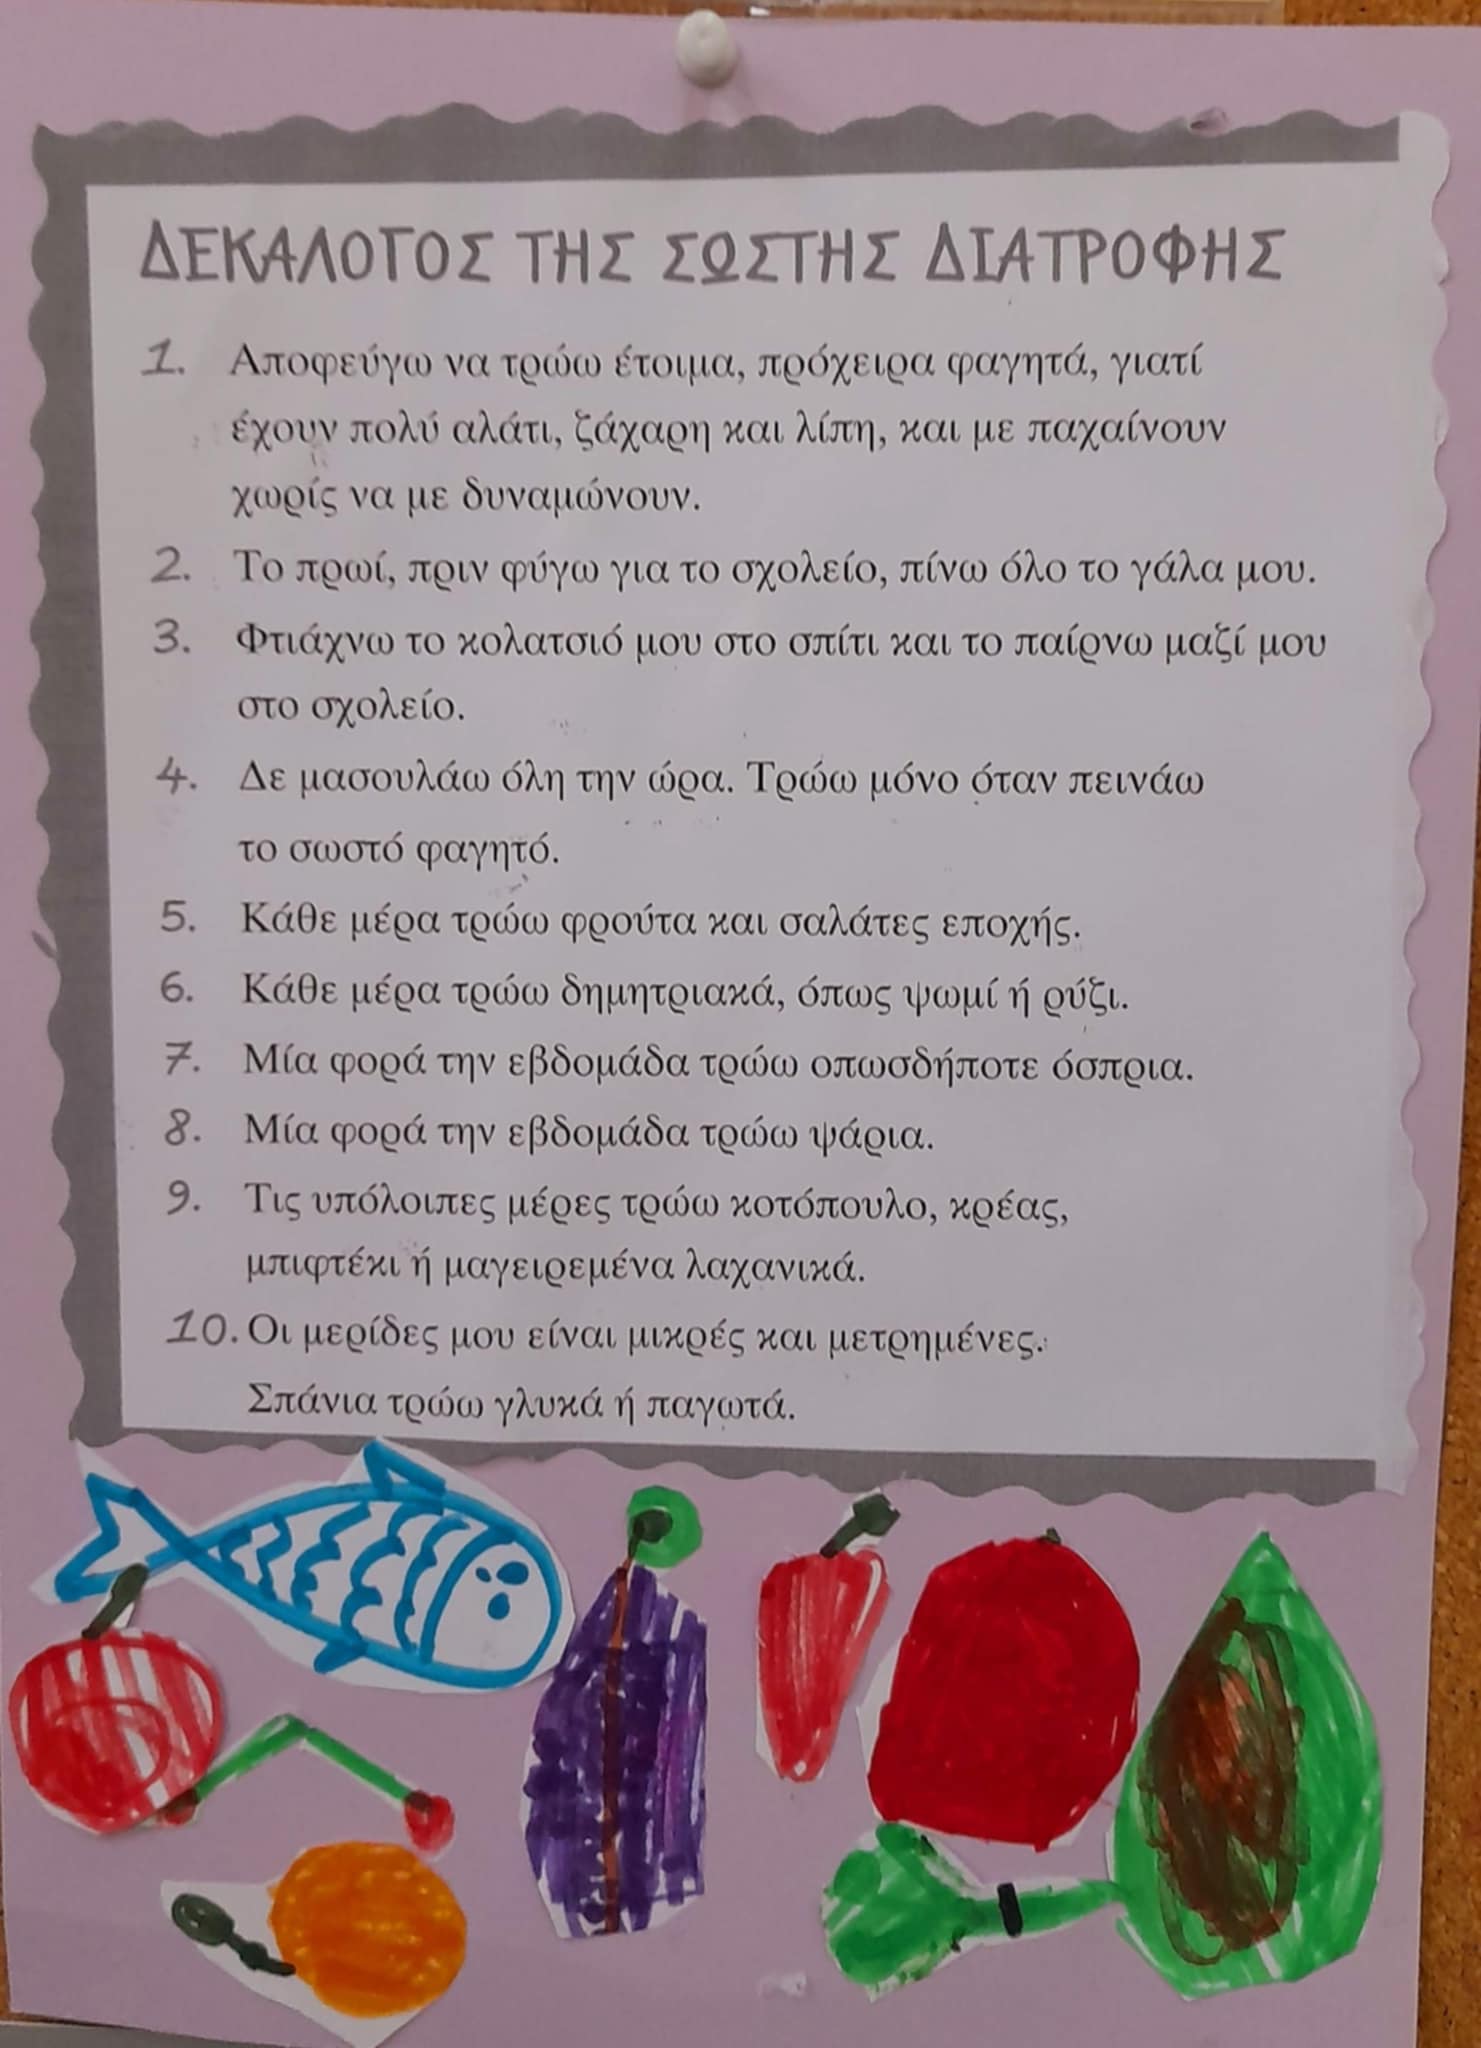 ΔΕΚΑΛΟΓΟΣ ΤΗΣ ΣΩΣΤΗΣ ΔΙΑΤΡΟΦΗΣ
1. Αποφεύγω να τρώω έτοιμα, πρόχειρα φαγητά, γιατί
έχουν πολύ αλάτι, ζάχαρη και λίπη, και με παχαίνουν
χωρίς να με δυναμώνουν.
2. Το πρωί, πριν φύγω για το σχολείο, πίνω όλο το γάλα μου.
3. Φτιάχνω το κολατσιό μου στο σπίτι και το παίρνω μαζί μου
στο σχολείο.
4. Δε μασουλάω όλη την ώρα. Τρώω μόνο όταν πεινάω
το σωστό φαγητό.
5. Κάθε μέρα τρώω φρούτα και σαλάτες εποχής.
6. Κάθε μέρα τρώω δημητριακά, όπως ψωμί ή ρύζι.
7. Μία φορά την εβδομάδα τρώω οπωσδήποτε όσπρια.
8. Μία φορά την εβδομάδα τρώω ψάρια.
9. Τις υπόλοιπες μέρες τρώω κοτόπουλο, κρέας,
μπιφτέκι ή μαγειρεμένα λαχανικά.
10. Οι μερίδες μου είναι μικρές και μετρημένες.
Σπάνια τρώω γλυκά ή παγωτά.